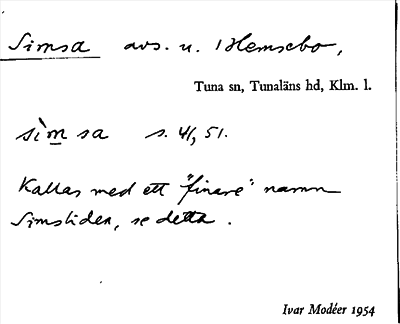 Simsa avs. u. Hemsebo,
Tuna sn, Tunaläns hd, Klm. l.
sìm sa s. 41, 51.
Kallas med ett "finare" namn
Simstiden, se detta.
Ivar Modéer 1954